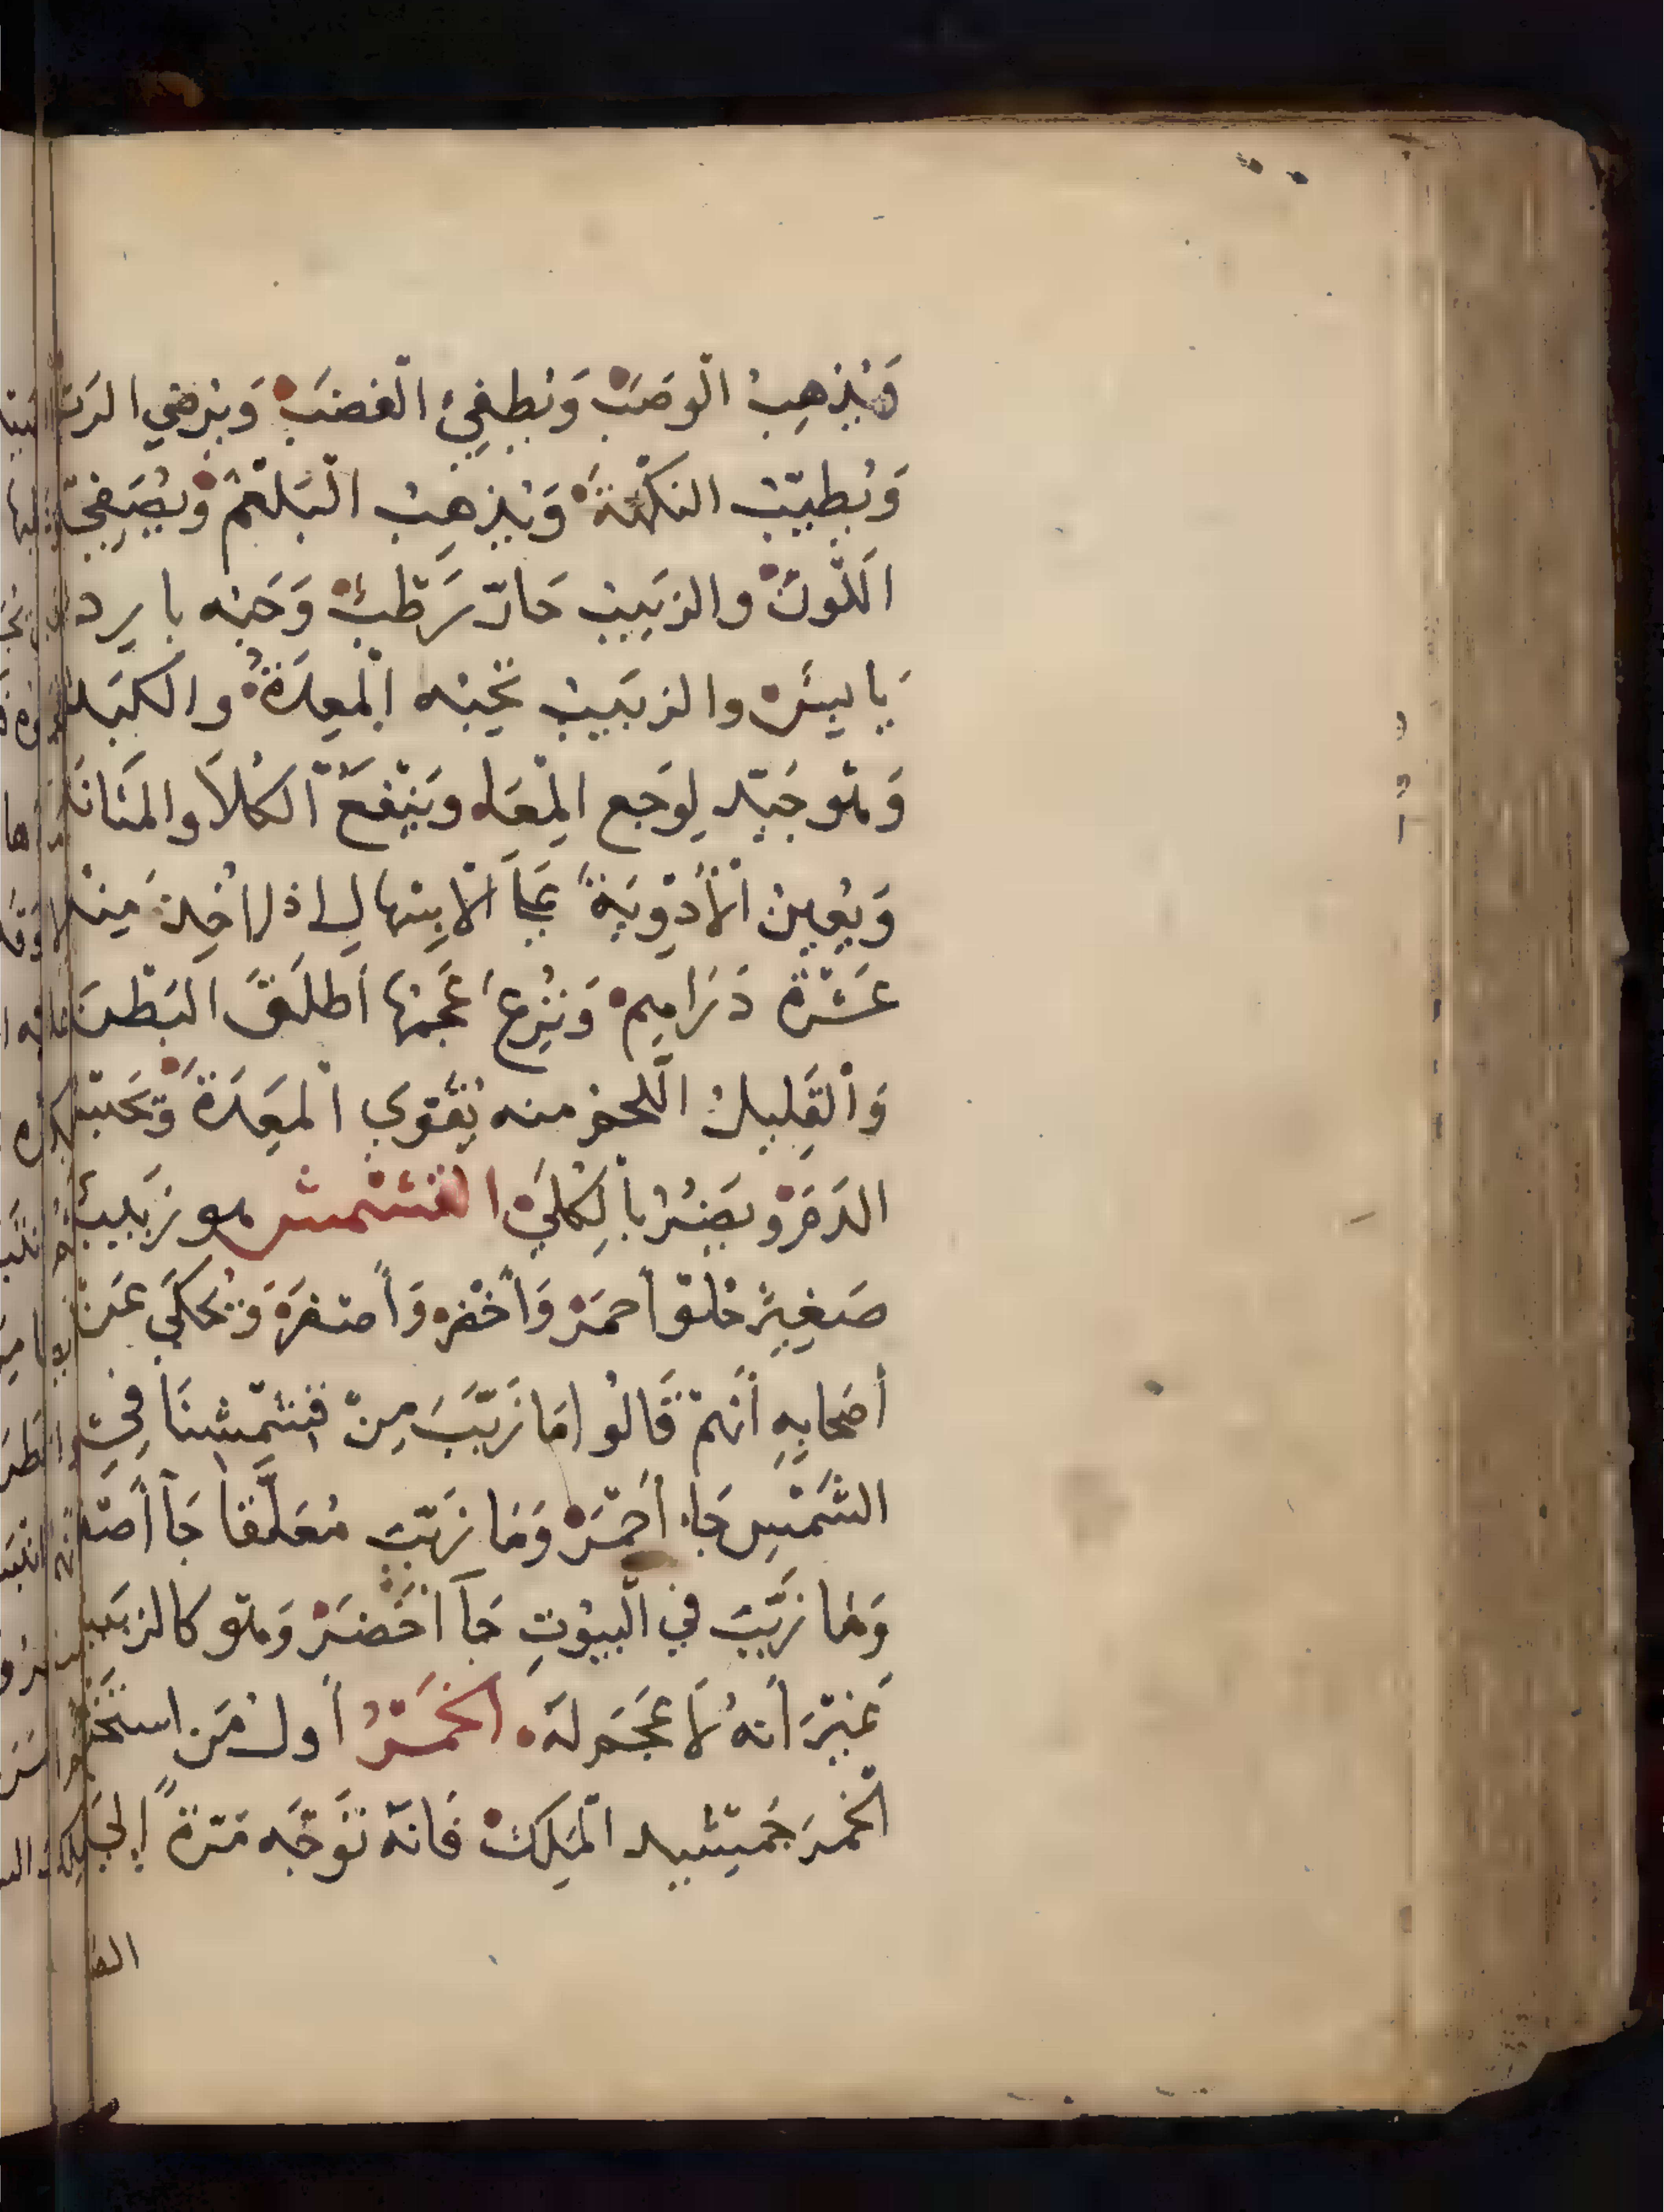 وَيُذهِبُ الْوَصَبْ وَيُطفِئُ الْغَضَبْ وَيُرضِي الرَبّ
وَيُطيّبُ النكْهَةَ وَيُذهِبُ الْبَلغَمْ وَيُصَفِي
اَللَّونْ والزَبيبُ حَارّ رَطْبٌ وَحَبّه بارد
يَابسٌ والزبَيبُ تحِبّه اْلمعِدَةُ والكَبَد
وَهُو جَيّد لِوَجع المْعَا وَيَنْفَعُ اْلكُلاَ والمَثانَة
وَيُعِينُ الْأَدْوِيَةً عَلَى الْاِسْهال اذا اُخِذَ مِنْه
عَشْرَة دَرَاهِم وَنُزِعَ عَجَمُها أَطلَقَ البَطْنَ
وَاْلقَلِيلُ اللحم منه يُقَوي اْلمعِدَةَ وَيحْبس
الدَمَ وَيَضُرُ بالكُلَى القشمش هو زَبيب
صَغِيرٌ حُلْو أحمَرْ وَأخْضر وَأصْفرَ وَيُحكَى عَنْ
أصَحابِهِ أَنهمْ قَالُوا مَا زَبّبَ مِنْ قِشْمِشِنَا فِي
الشَمْسِ جَاء أحْمَرْ وَمَا زَبّبَ مُعَلَّقاً جَآ أصْفر
وَمَا زَبّبَ في الْبيُوتِ جَآ أخَضَرْ وَهُو كالزبَيب
غَيْرَ أَنهُ لَا عَجَم لَه الْخَمْرُ أول مَن استَخْرج
الْخمرَ جَمْشيد اْلمَلِكْ فَانّه تَوَجَّه مَرّةً إلى
الصَ